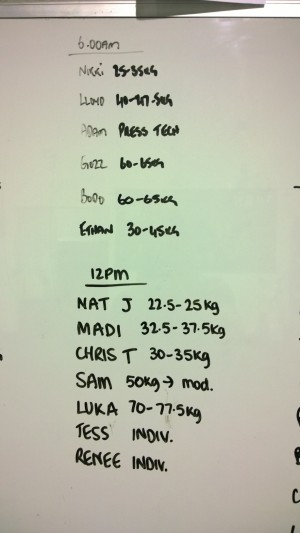 6.00AM
NIKKI 25-35KG
LLOYD 40-47.5KG
ADAM PRESS TECH
GUZZ 60-65KG
BODO 60-65KG
ETHAN 30-45KG
12PM
NAT J 22.5-25kg
MADI 32.5-37.5kg
CHRIS T 30-35kg
SAM 50kg→ mod.
LUKA 70-77.5kg
TESS INDIV.
RENEE INDIV.